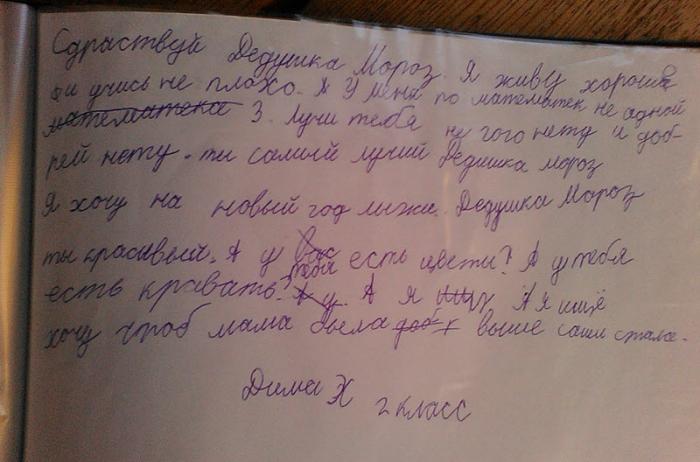 Сдраствуй Дедушка Мороз. Я живу хорошо
и учусь не плохо. А У меня по математек не одной
математека 3. Лучи тебя не гого нету и доб-
рей нету. ты самый лучий Дедушка мороз
Я хочу на новый год лыжи. Дедушка Мороз
ты красивый. А у вас тебя есть цвети? А у тебя
есть кравать? А у. А я ищу А я ищё
хочу чтоб мама была доб выше саши стала.
Дима Х
2 класс